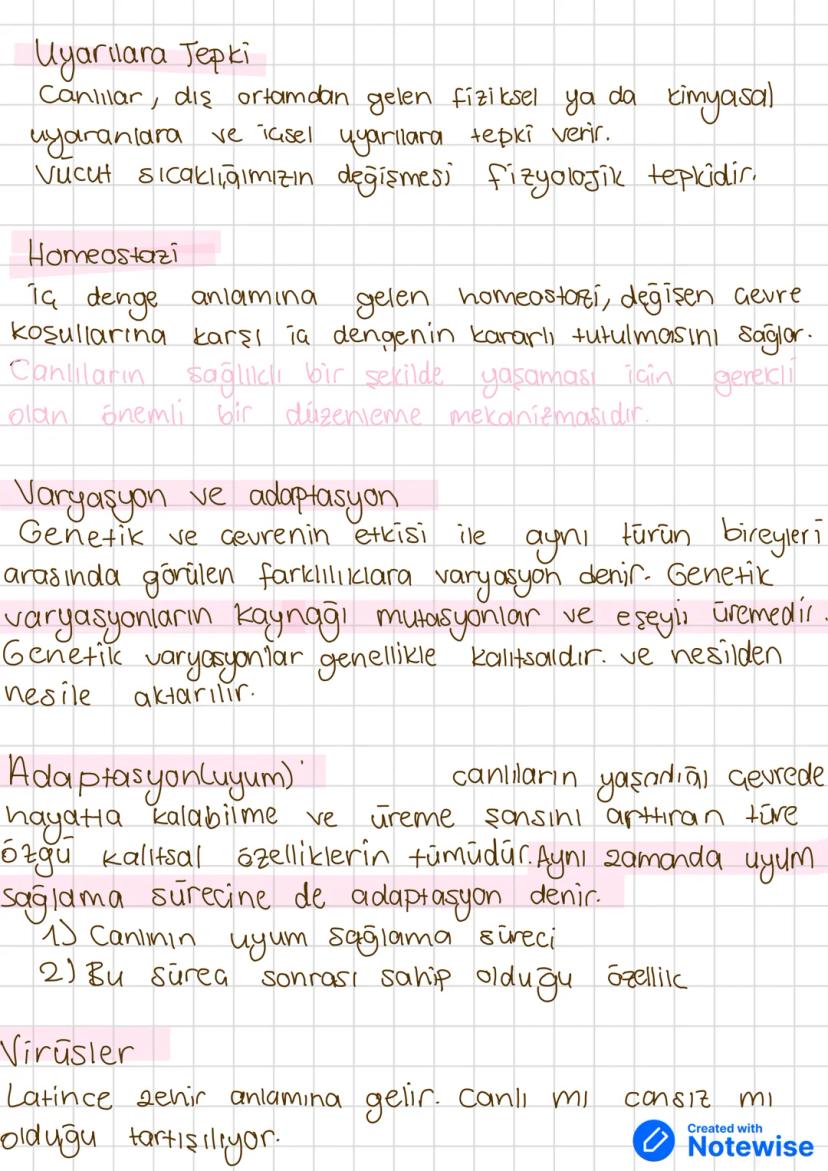 Uyarılara Tepki
Canlılar, dış ortamdan gelen fiziksel ya da kimyasal
uyaranlara ve içsel uyarılara tepki verir.
Vücut sıcaklığımızın değişmesi fizyolojik tepkidir.
Homeostazi
İç denge anlamına gelen homeostazi, değişen çevre
koşullarına karşı iç dengenin kararlı tutulmasını sağlar.
Canlıların sağlıklı bir şekilde yaşaması için gerekli
olan önemli bir düzenleme mekanizmasıdır.
Varyasyon ve adaptasyon
Genetik ve çevrenin etkisi ile aynı türün bireyleri
arasında görülen farklılıklara varyasyon denir. Genetik
varyasyonların kaynağı mutasyonlar ve eşeyli üremedir.
Genetik varyasyonlar genellikle kalıtsaldır. ve nesilden
nesile aktarılır.
Adaptasyon(uyum) canlıların yaşadığı çevrede
hayatta kalabilme ve üreme şansını arttıran türe
özgü kalıtsal özelliklerin tümüdür. Aynı zamanda uyum
sağlama sürecine de adaptasyon denir.
1) Canlının uyum sağlama süreci
2) Bu süreç sonrası sahip olduğu özellik
Virüsler
Latince zehir anlamına gelir. Canlı mı cansız mı
olduğu tartışılıyor.
Created with
Notewise